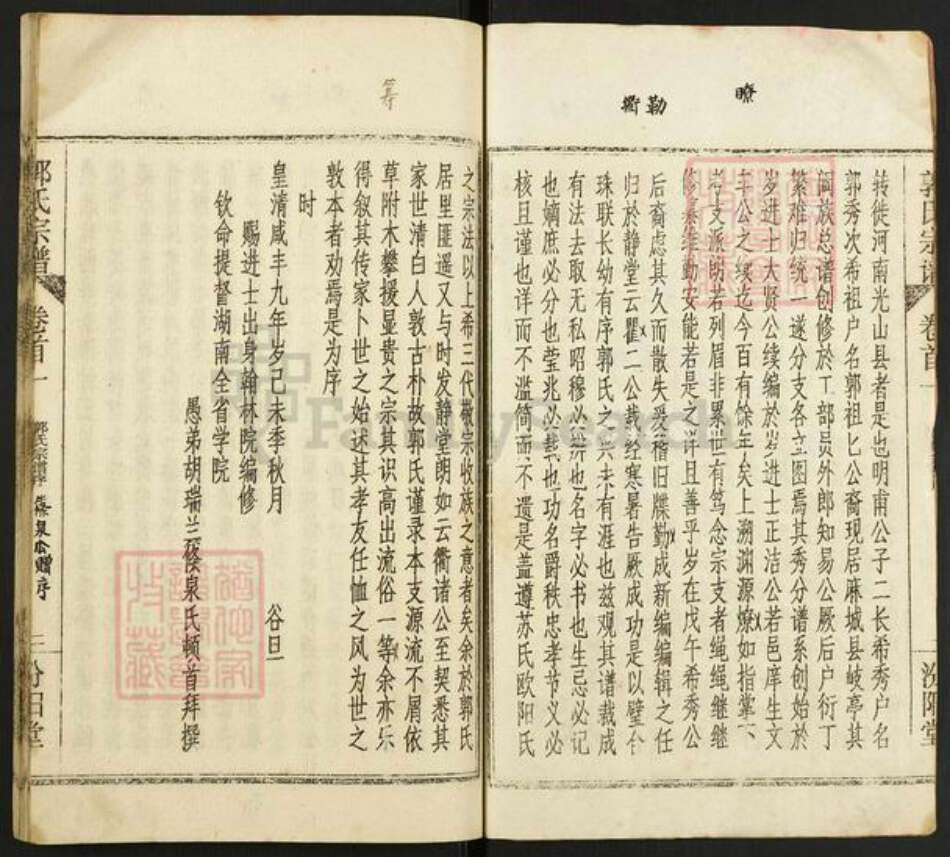 瞭
勒
衢
郭氏宗谱
卷首一
汾陽堂
转徙河南光山县者是也明甫公子二长希秀户名
郭秀次希祖户名郭祖七公裔现居麻城县岐亭其
阖族总谱创修於工部员外郎知易公厥后户衍丁
繁难归统一遂分支各立图焉其秀分谱系创始於
岁进士大贤公续编於岁进士正洁公若邑庠生文
丰公之续迄今百有馀年矣上溯渊源燎如指掌下
考支派朗若列眉非累世有笃念宗支者绳绳继继
修纂维勤安能若是之详且善乎岁在戊午希秀公
后裔虑其久而散失爰稽旧牒勤成新编编辑之任
归於静堂云瞿二公裁经寒暑告厥成功是以璧合
珠联长幼有序郭氏之兴未有涯也兹观其谱裁成
有法去取无私昭穆必辨也名字必书也生忌必记
也嫡庶必分也莹兆必葬也功名爵秩忠孝节义必
核且谨也详而不滥简而不遗是盖遵苏氏欧阳氏
筹
之宗法以上希三代敬宗收族之意者矣余於郭氏
居里匪遥又与时发静堂朗如云衢诸公至契悉其
家世清白人敦古朴故郭氏谨录本支源流不屑依
草附木攀援显贵之宗其识高出流俗一等余亦乐
得叙其传家卜世之始述其孝友任恤之风为世之
敦本者劝焉是为序
时
皇清咸丰九年岁己未季秋月 谷旦
赐进士出身翰林院编修
钦命提督湖南全省学院
愚弟胡瑞兰筱泉氏顿首拜撰
郭氏宗譜
卷首一
三
汾阳堂